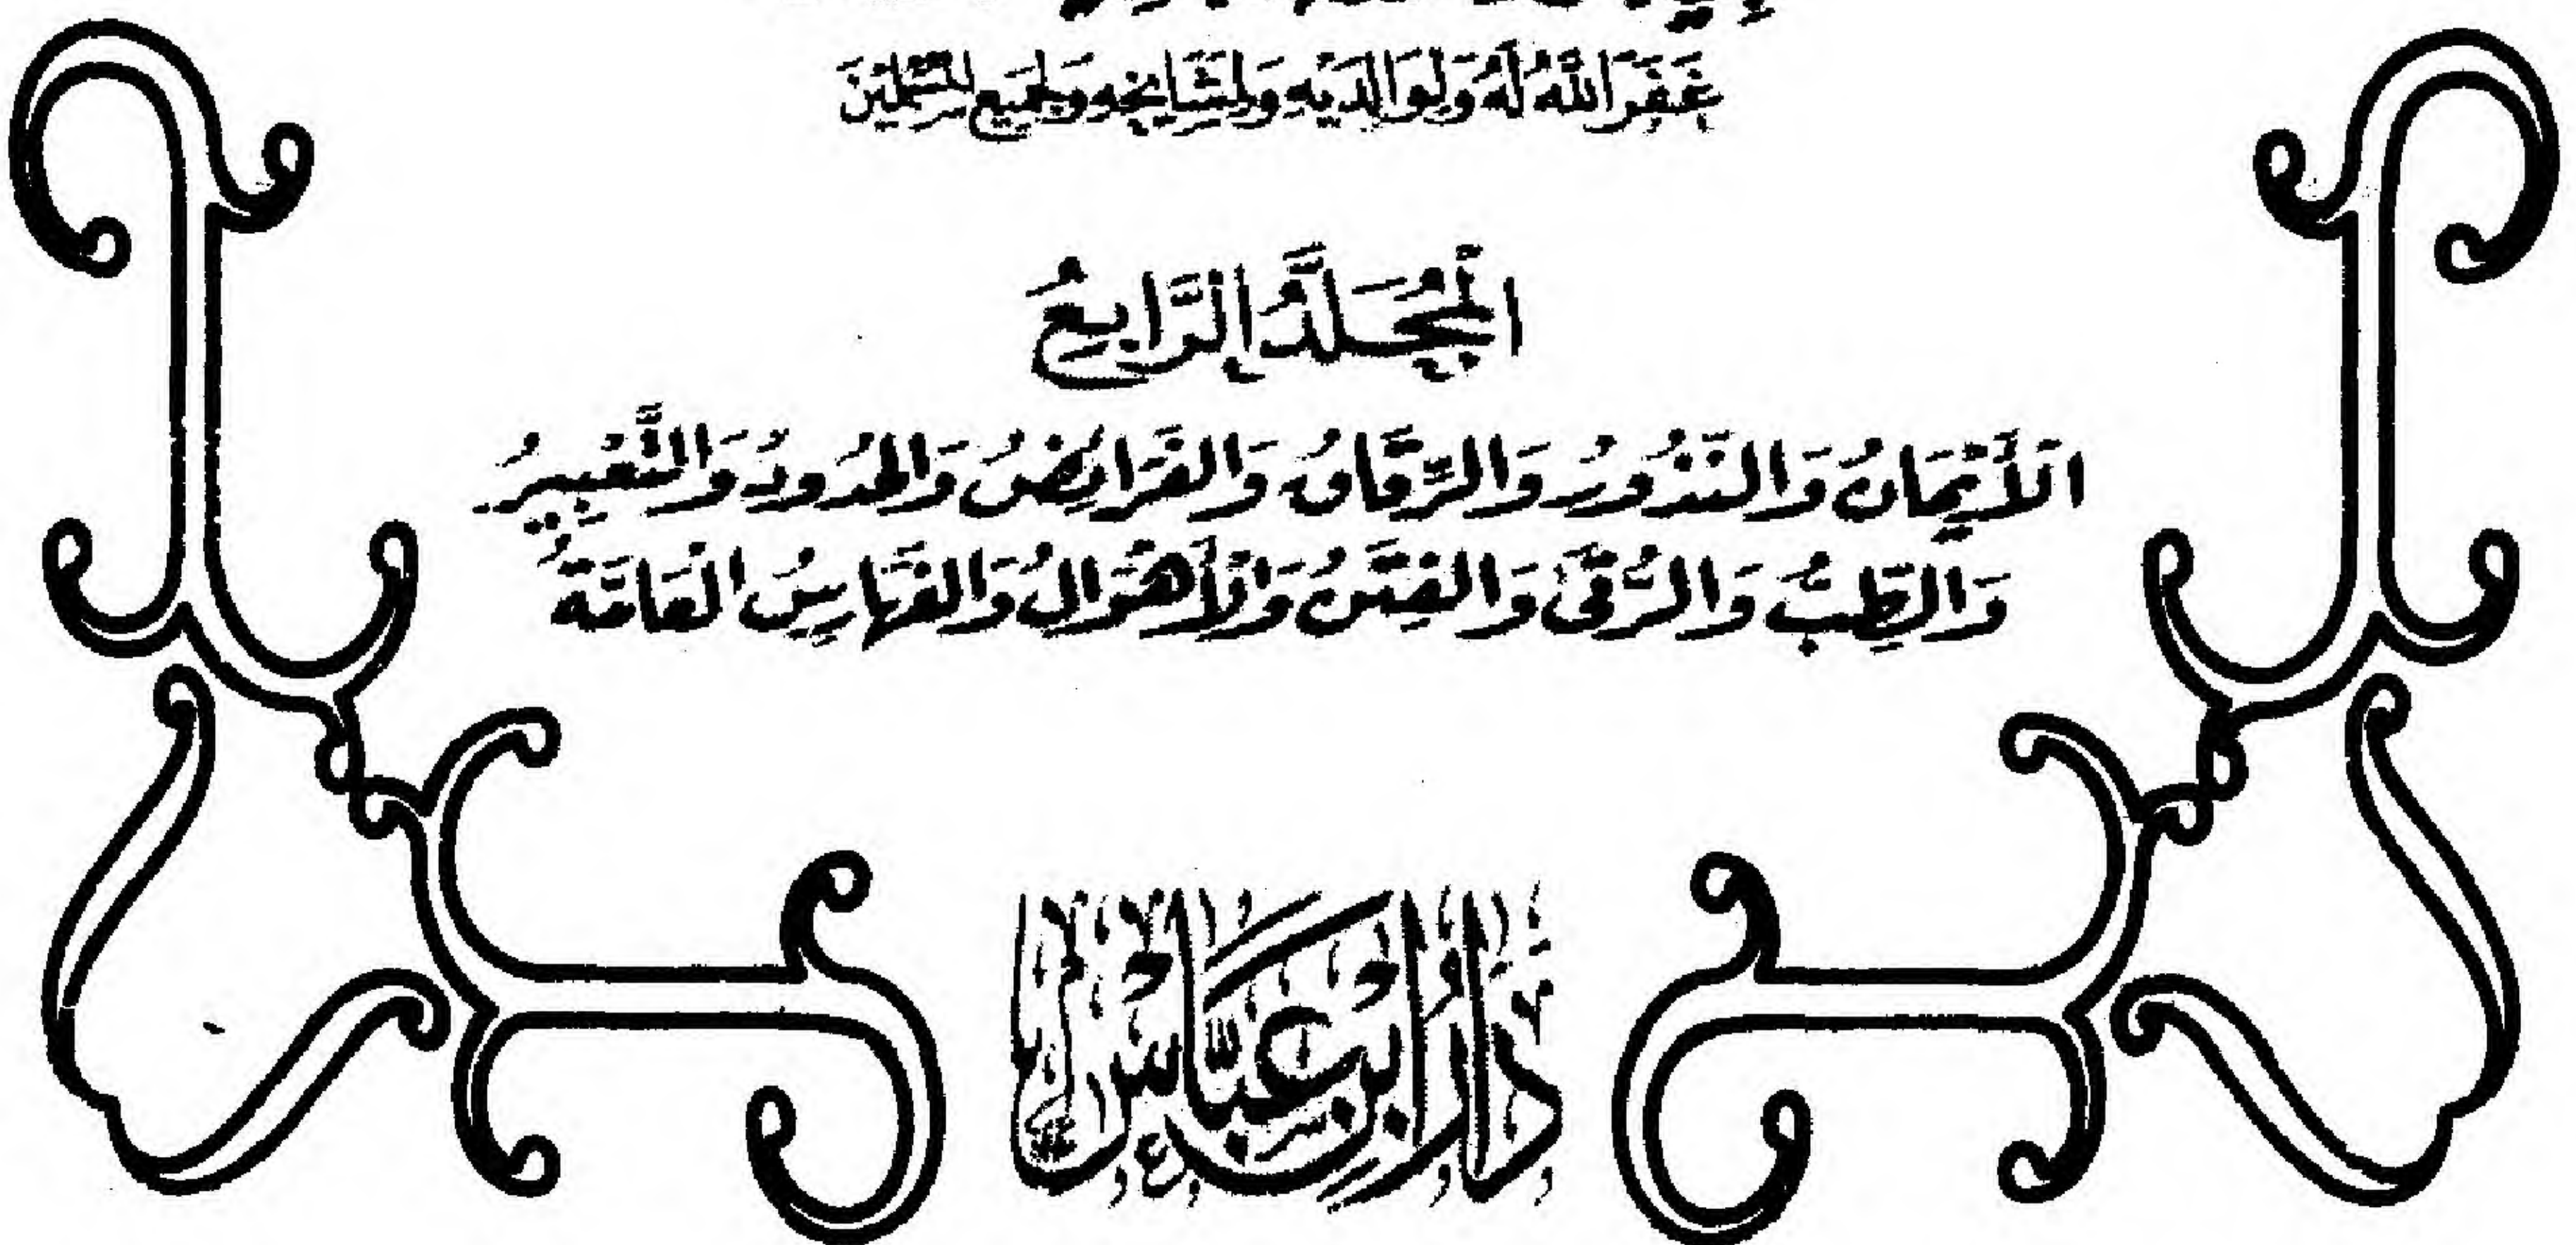 غَفَرَ اللهُ لَهُ وَلِوَالِدَيْهِ وَلِمَشَايِخِهِ وَلِجَمِيعِ الْمُسْلِمِينَ
الْمُجَلَّدُ الرَّابِعُ
الْأَيْمَانُ وَالنُّذُورُ وَالرِّقَاقُ وَالْفَرَائِضُ وَالْحُدُودُ وَالتَّعْبِيرُ
وَالطِّبُّ وَالرُّقَى وَالْفِتَنُ وَالْأَهْوَالُ وَالْفَهَارِسُ الْعَامَّةُ
دار ابن عباس